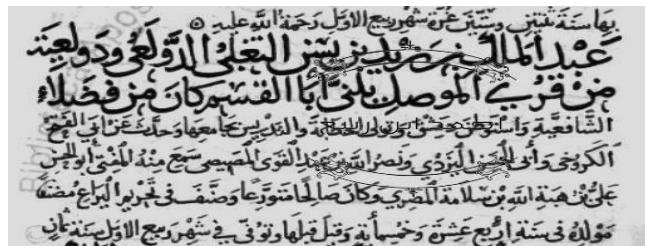 بها سنة ثنتين وستين غرة شهر ربيع الاول رحمة الله عليه
عبد الملك بن زيد بن يس التغلبي الدولعي ودولعية
من قرى الموصل يكنى با القسم كان من فضلاء
الشافعية واستوطن دمشق وتولى الخطابة والتدريس بجامعها وحدث عن ابي الفتح
الكروخي وأبى الحسن البزدي ونصر الله بن عبد القوى المصيصى سمع منه المفتى ابو الحسن
على بن هبة الله بن سلامة المصري وكان صالحا متورعا وصنف فى تحريم البراع مصنفا
مولده فى سنة اربع عشرة وخمسمأية وقيل قبلها وتوفى في شهر ربيع الاول سنة ثمان